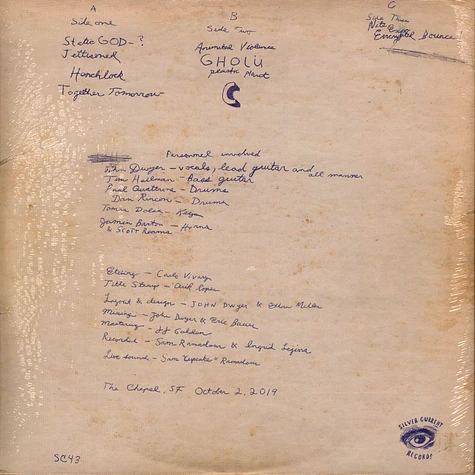 A
Side one
Static GOD-?
Jettisoned
Honchlock
Together Tomorrow
B
Side Two
Animated Violence
GHOLÜ
C
Side Three
Nite Expo
Encrypted Bounce
Personnel involved
John Dwyer – vocals, lead guitar and all manner
Tim Hellman – Bass guitar
Paul Quattrone – Drums
Dan Rincon – Drums
Tomas Dolas – Keys
– Horns
& Scott
Etching – Carlo Vivary
Title Stamp –
Layout & design – JOHN Dwyer & Ethan Miller
Mixing – John Dwyer & Eric Bauer
Mastering – JJ Golden
Recorded – Sam Ramsdown & Ingrid
Live sound – Sam "Cupcake" Ramsdown
The Chapel, SF October 2, 2019
SC43
SILVER CURRENT
RECORDS